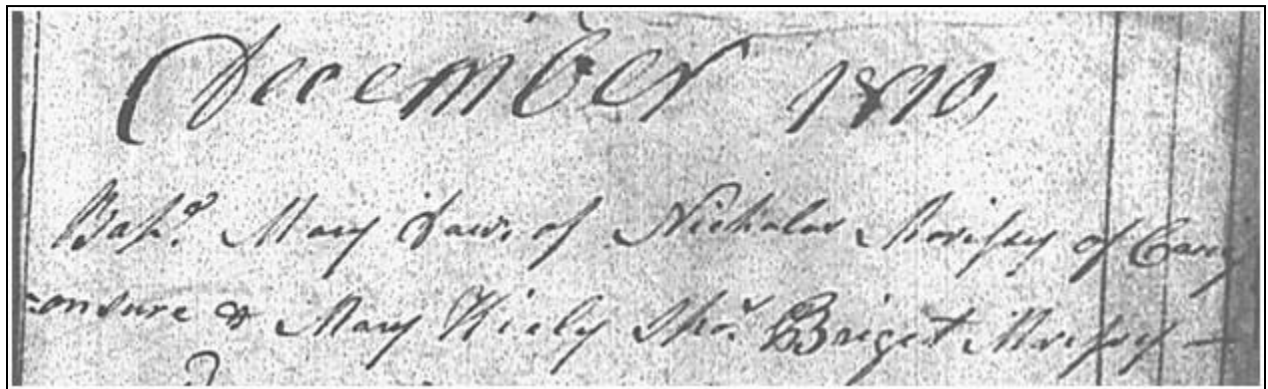 December 1810,
Bapd. Mary Daur. of Nicholas Morissy of Carrig
=onsure & Mary Kiely Spo.r Briget Morissy —